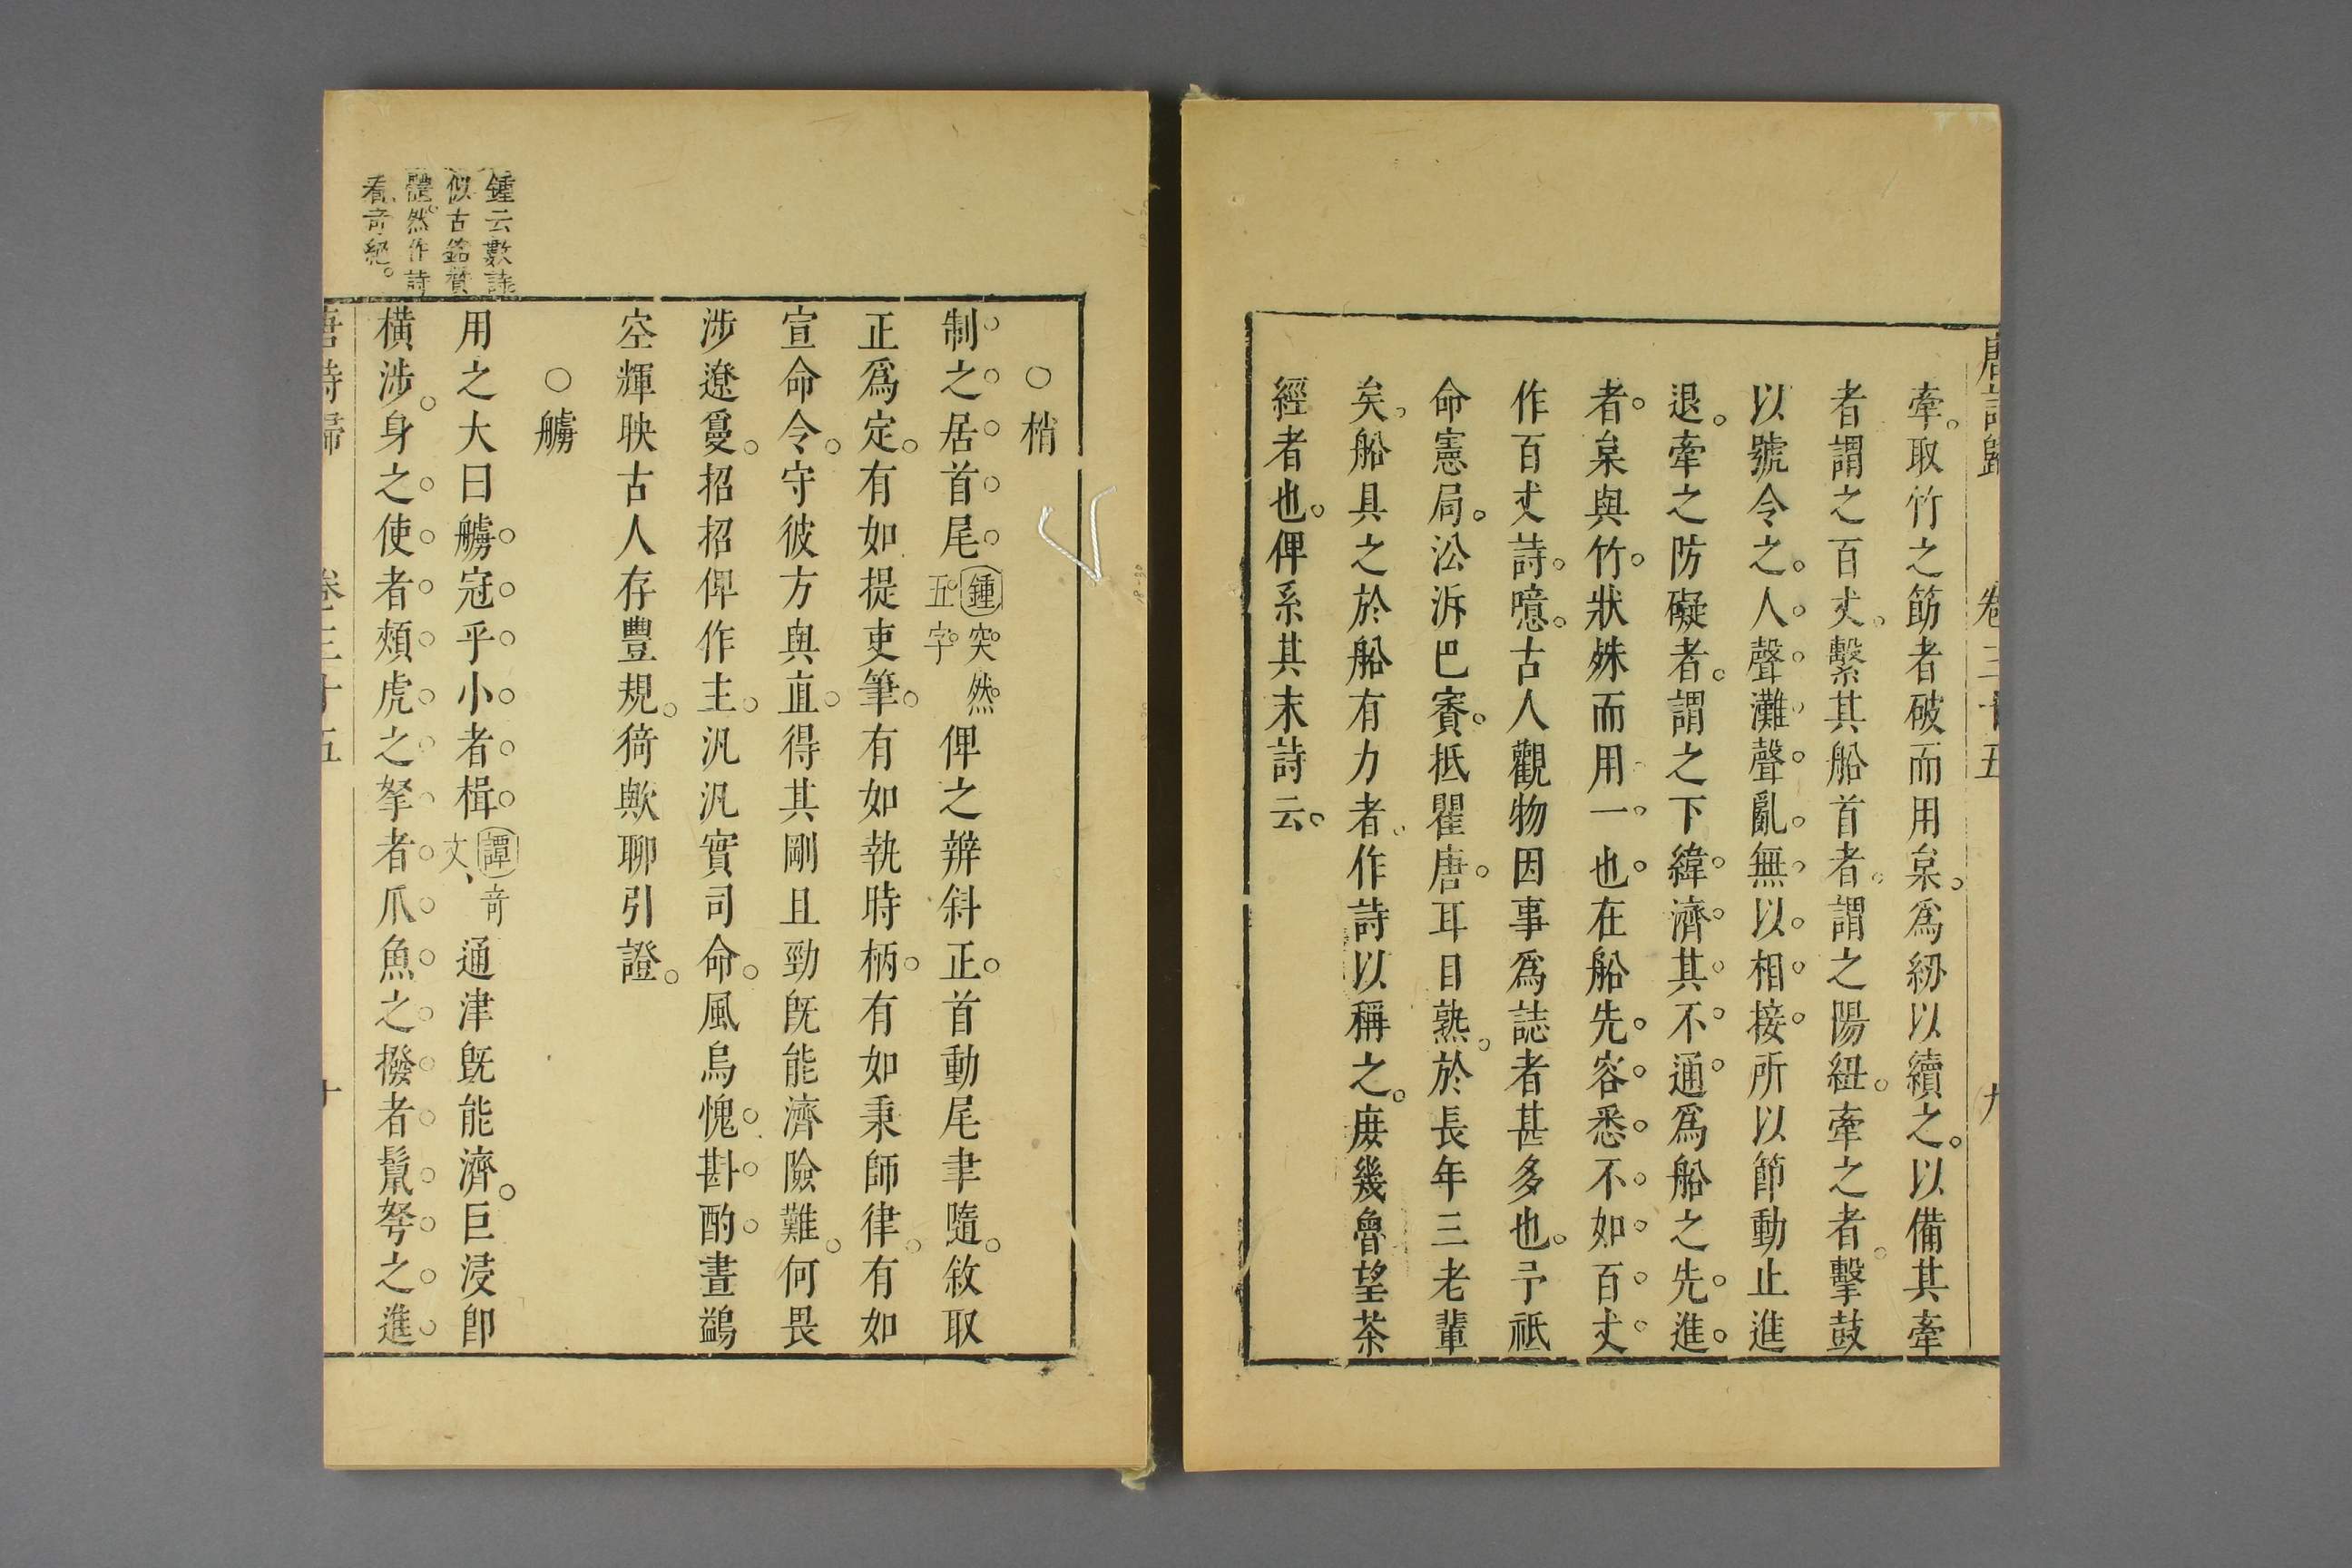 唐詩歸 卷三十五 九
牽。取竹之筋者破而用枲。爲紉以續之。以備其牽
者謂之百丈。繫其船首者。謂之陽紐。牽之者。擊鼓
以號令之。人聲灘聲亂。無以相接。所以節動止進
退。牽之防礙者。謂之下緯。濟其不通。爲船之先進。
者。枲與竹。狀殊而用一也。在船先容悉不如百丈。
作百丈詩。噫。古人觀物因事爲誌者甚多也。予祗
命憲局。㳂泝巴賨。抵瞿唐。耳目熟。於長年三老輩
矣。船具之於船有力者。作詩以稱之。庻幾魯望茶
經者也。俾系其末詩云。
○梢
制之居首尾。鍾突然五字俾之辨斜正。首動尾聿隨。敘取
正爲定。有如提吏筆。有如執時柄。有如秉師律。有如
宣命令。守彼方與直。得其剛且勁旣能濟險難。何畏
涉遼敻。招招俾作主。汎汎實司命。風烏愧斟酌。畫鷁
空輝映古人存豐規。猗歟聊引證。
○艣
用之大曰艣。冠乎小者楫。譚奇文、通津旣能濟。巨浸卽
橫涉。身之使者頰。虎之拏者爪。魚之撥者鬣。弩之進。
唐詩歸 卷三十五 十
鍾云數詩
似古銘贊
體。然作詩
看、奇絕。